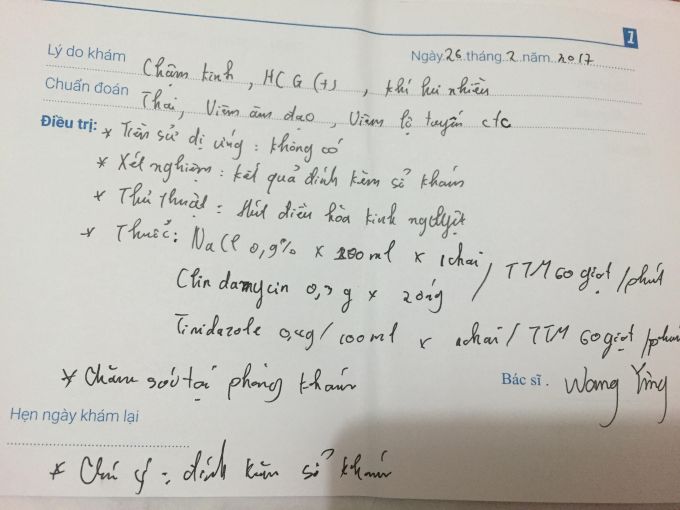 1
Lý do khám Chậm kinh, HCG (+), khí hư nhiều Ngày 26 tháng 2 năm 2017
Chuẩn đoán Thai, Viêm âm đạo, Viêm lộ tuyến ctc
Điều trị: * Tiền sử dị ứng: không có
* Xét nghiệm: kết quả đính kèm sổ khám
* Thủ thuật: Hút điều hòa kinh nguyệt
* Thuốc: NaCl 0,9% x 200ml x 1chai / TTM 60 giọt/phút
Clindamycin 0,3g x 2 ống
Tinidazole 0,4g/100ml x 1chai / TTM 60 giọt/phút
* Chăm sóc tại phòng khám Bác sĩ. Wang Ying
Hẹn ngày khám lại
* Chú ý: đính kèm sổ khám